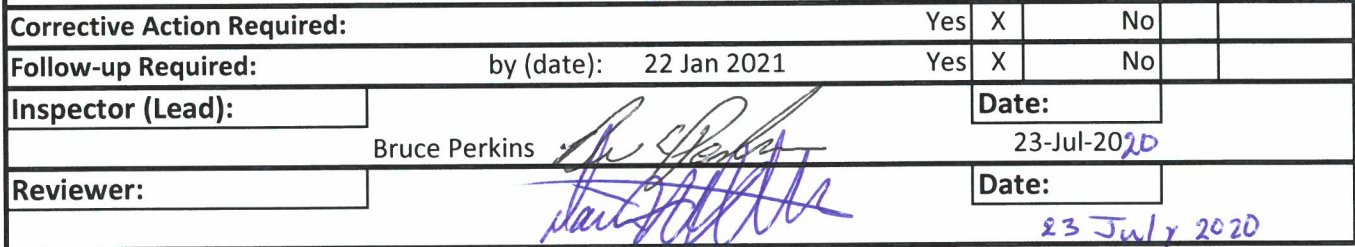 Corrective Action Required: Yes X No
Follow-up Required: by (date): 22 Jan 2021 Yes X No
Inspector (Lead): Date:
Bruce Perkins 23-Jul-2020
Reviewer: Date:
23 July 2020